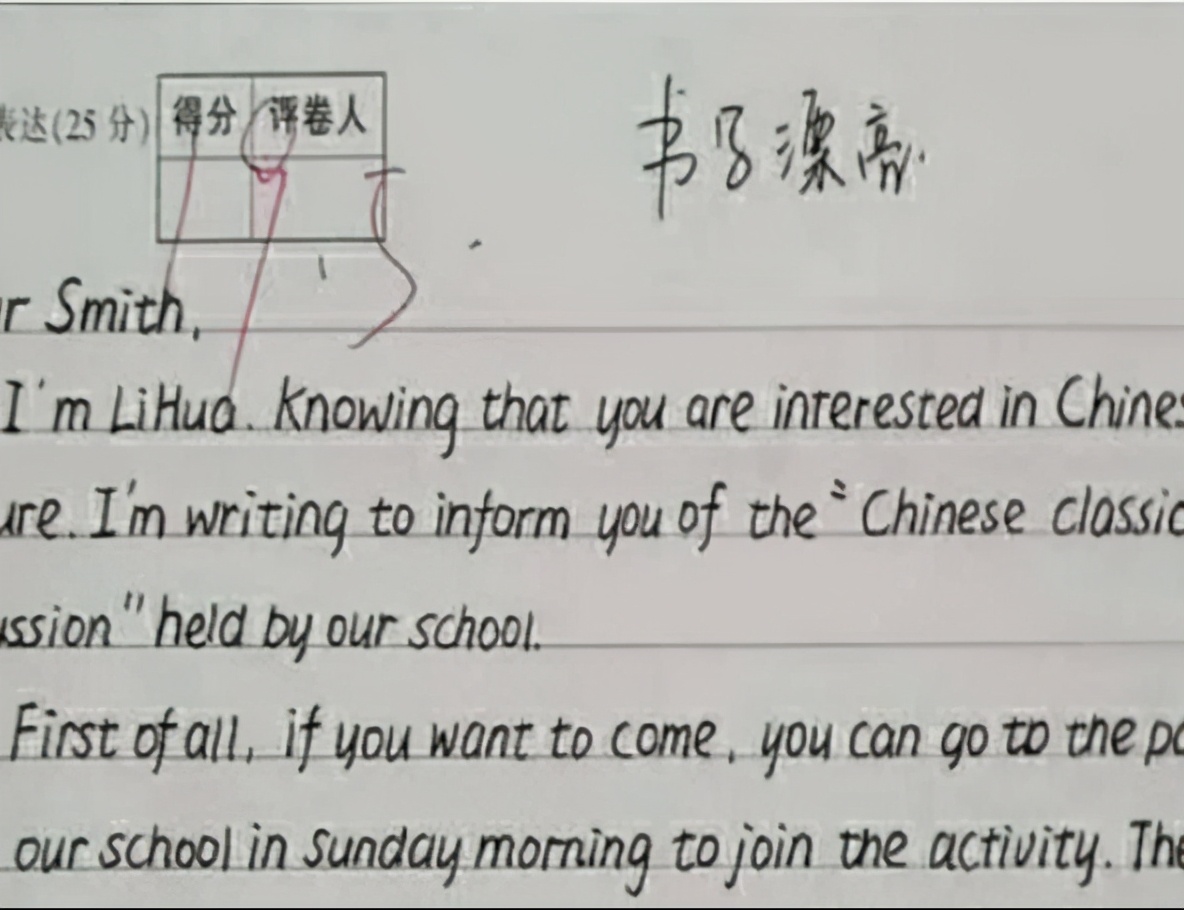 表达(25 分) 得分 评卷人
书写漂亮.
r Smith,
I'm LiHua. Knowing that you are interested in Chines
ure. I'm writing to inform you of the "Chinese classic
ussion" held by our school.
First of all, if you want to come, you can go to the pa
our school in Sunday morning to join the activity. The